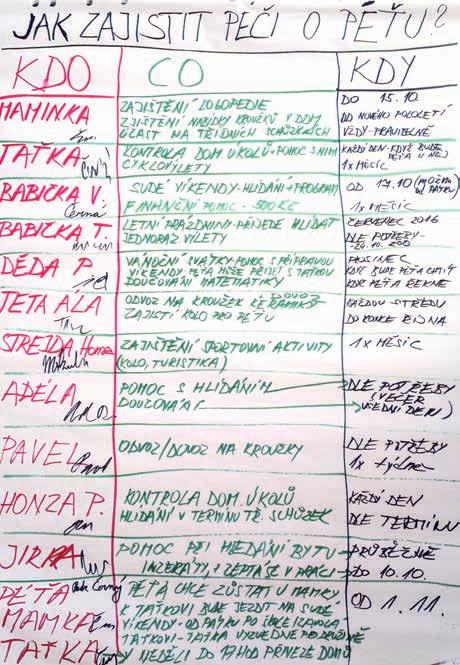 JAK ZAJISTIT PÉČI O PÉŤU?
KDO CO KDY
MAMINKA ZAJIŠTĚNÍ LOGOPEDIE DO 15.10.
ZJIŠTĚNÍ NABÍDKY KROUŽKŮ V DDM OD NOVÉHO POLOLETÍ
ÚČAST NA TŘÍDNÍCH SCHŮZKÁCH VŽDY-PRAVIDELNĚ
TAŤKA KONTROLA DOM. ÚKOLŮ+POMOC S NIMI KAŽDÝ DEN-KDYŽ BUDE PÉŤA U NĚJ
CYKLOVÝLETY 1x MĚSÍC
BABIČKA V. SUDÉ VÍKENDY-HLÍDÁNÍ+PROGRAM OD 17.10 (MOŽNO OD PÁTKU)
Černá FINANČNÍ POMOC - 500 KČ 1x MĚSÍC
BABIČKA T. LETNÍ PRÁZDNINY-PŘIJEDE HLÍDAT ČERVENEC 2016
JEDNORÁZ VÝLETY DLE POTŘEBY-
DĚDA P. VÁNOČNÍ SVÁTKY-POMOC S PŘÍPRAVOU PROSINEC
VÍKENDY-PÉŤA MŮŽE PŘIJET S TAŤKOU KDY BUDE PÉŤA CHTÍT
DOUČOVÁNÍ MATEMATIKY KDY PÉŤA ŘEKNE
TETA ÁLA ODVOZ NA KROUŽEK KAŽDOU STŘEDU
ZAJISTÍ KOLO PRO PÉŤU DO KONCE ŘÍJNA
STREJDA Honza ZAJIŠTĚNÍ SPORTOVNÍ AKTIVITY 1x MĚSÍC
(KOLO, TURISTIKA)
ADÉLA POMOC S HLÍDÁNÍM DLE POTŘEBY
DOUČOVÁNÍ (VEČER
VŠEDNÍ DEN)
PAVEL ODVOZ/DOVOZ NA KROUŽKY DLE POTŘEBY
1x týdně
HONZA P. KONTROLA DOM. ÚKOLŮ KAŽDÝ DEN
HLÍDÁNÍ V TERMÍNU TŘ. SCHŮZEK DLE TERMÍNU
JIRKA POMOC PŘI HLEDÁNÍ BYTU PRŮBĚŽNĚ
INZERÁTY + ZEPTÁ SE V PRÁCI DO 10.10.
PÉŤA PÉŤA CHCE ZŮSTAT U MAMKY OD 1.11.
MAMKA K TAŤKOVI BUDE JEZDIT NA SUDÉ
VÍKENDY-OD PÁTKU PO ŠKOLE
TAŤKA TAŤKOVI-TAŤKA VYZVEDNE PO DRUŽINĚ
V NEDĚLI DO 17 HOD PŘIVEZE DOMŮ